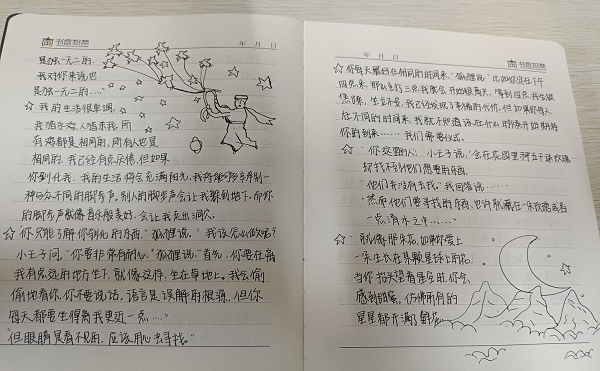 书香如商
年 月 日
是独一无二的,
我对你来说也
是独一无二的……"
☆ 我的生活很单调,
我猎杀鸡,人猎杀我,所
有鸡都是相同的,所有人也是
相同的,我已经有点厌倦,但如果
你驯化我,我的生活将会充满阳光,我将能够辨别
一种与众不同的脚步声。别人的脚步声会让我躲到地下,而你
的脚步声就像音乐般美好,会让我走出洞穴
☆ 你只能了解你驯化的东西,"狐狸说。"我该怎么做呢?
小王子问,"你要非常有耐心。"狐狸说:"首先,你要在离
我有点远的地方坐下,就像这样,坐在草地上。我会偷
偷地看你,你不要说话。语言是误解的根源,但你
每天都要坐得离我更近一点……"
"但眼睛是看不见的,应该用心去寻找。"
年 月 日
☆ 你每天最好在相同的时间来,"狐狸说"比如你会在下午
四点来,那么到了三点我就会开始很高兴,等到四点,我会很
焦躁,坐立不安,我已经发现了幸福的代价,但如果你每天
在不同的时间来,我就不知道该在什么时候开始期待
你的到来……我们需要仪式。
☆ "你这里的人,"小王子说,"会在花园里种五千株玫瑰…
却找不到他们想要的东西,
"他们并没有去找。"我回答说……
"然而他们要寻找的东西,也许就藏在一朵玫瑰或者
一点清水之中……"
☆ 就像那朵花,如果你爱上
一朵生长在某颗星球上的花,
当你抬头望着星空时,你会
感到甜蜜,仿佛所有的
星星都开满了鲜花